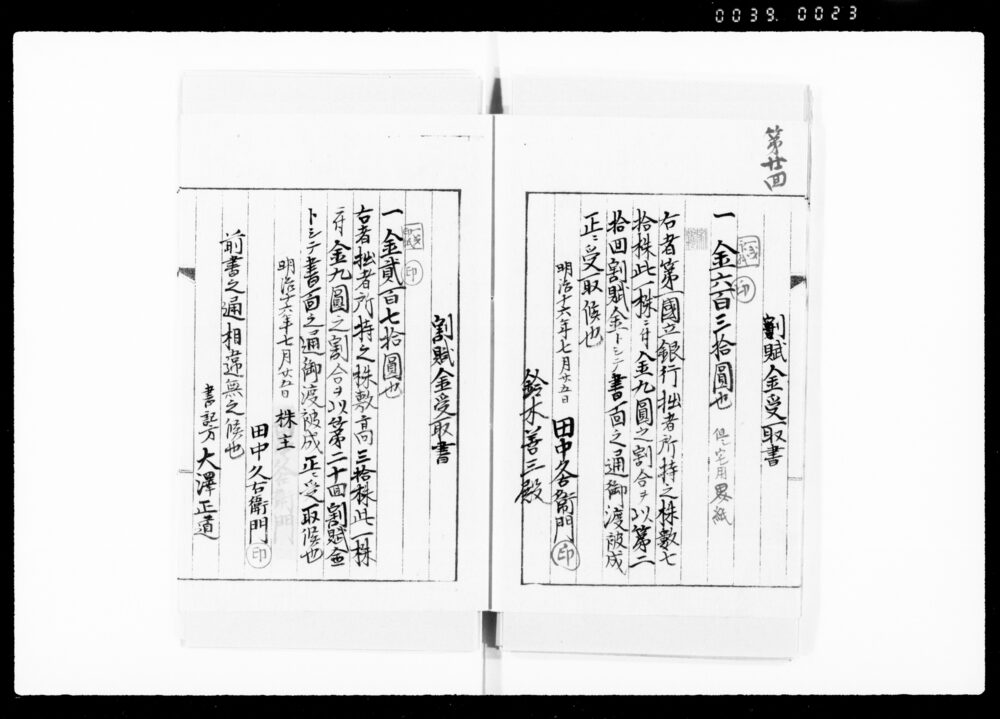 0039. 0023
第廿回
割賦金受取書
一金六百三拾圓也 但宅用罫紙
印
右者第一國立銀行拙者所持之株数七
拾株此一株ニ付金九圓之割合ヲ以第二
拾回割賦金トシテ書面之通御渡被成
正ニ受取候也
明治十六年七月廿五日 田中久右衛門 印
鈴木善三殿
割賦金受取書
印
一金貳百七拾圓也
右者拙者所持之株敷高三拾株此一株
ニ付金九圓之割合ヲ以第二十回割賦金
トシテ書面之通御渡被成正ニ受取候也
明治十六年七月廿五日 株主
田中久右衛門 印
前書之通相違無之候也
書記方 大澤正道